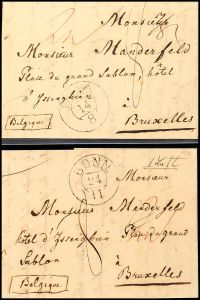 Monsieur
Monsieur Manderfeld
Place du grand Sablon, hôtel
d'Issenghien à
Belgique
Bruxelles
BONN
24
11
Monsieur
Monsieur Manderfeld
hôtel d'Issenghien Place du grand
Sablon à
Belgique
Bruxelles